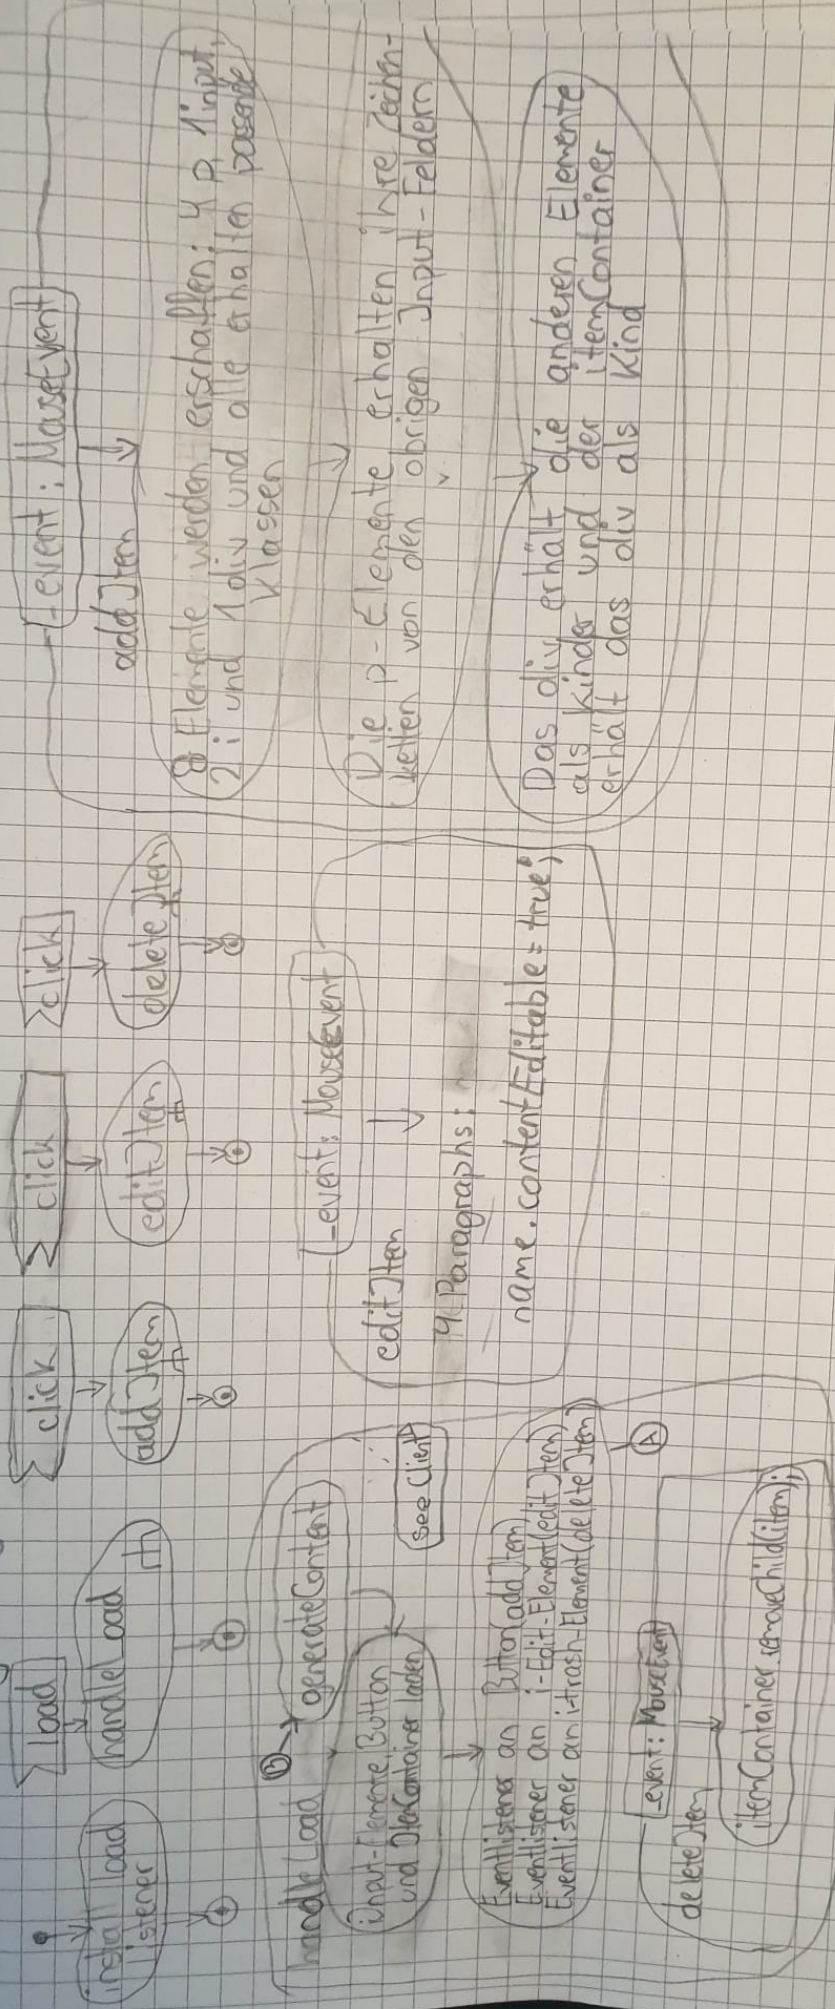 install load
listener
load
handleLoad
click
addItem
click
editItem
click
deleteItem
handleLoad
B
generateContent
input-Elemente, Button
und ItemContainer laden
see Client
Eventlistener an Button(addItem)
Eventlistener an i-Edit-Element(editItem)
Eventlistener an i-trash-Element(deleteItem)
A
_event: MouseEvent
deleteItem
itemContainer.removeChild(item);
_event: MouseEvent
editItem
4 Paragraphs:
name.contentEditable = true;
_event: MouseEvent
addItem
8 Elemente werden erschaffen: 4 p, 1 input,
2 i und 1 div und alle erhalten passende
Klassen
Die p-Elemente erhalten ihre Zeichen-
ketten von den obrigen Input-Feldern
Das div erhält die anderen Elemente
als Kinder und der itemContainer
erhält das div als Kind